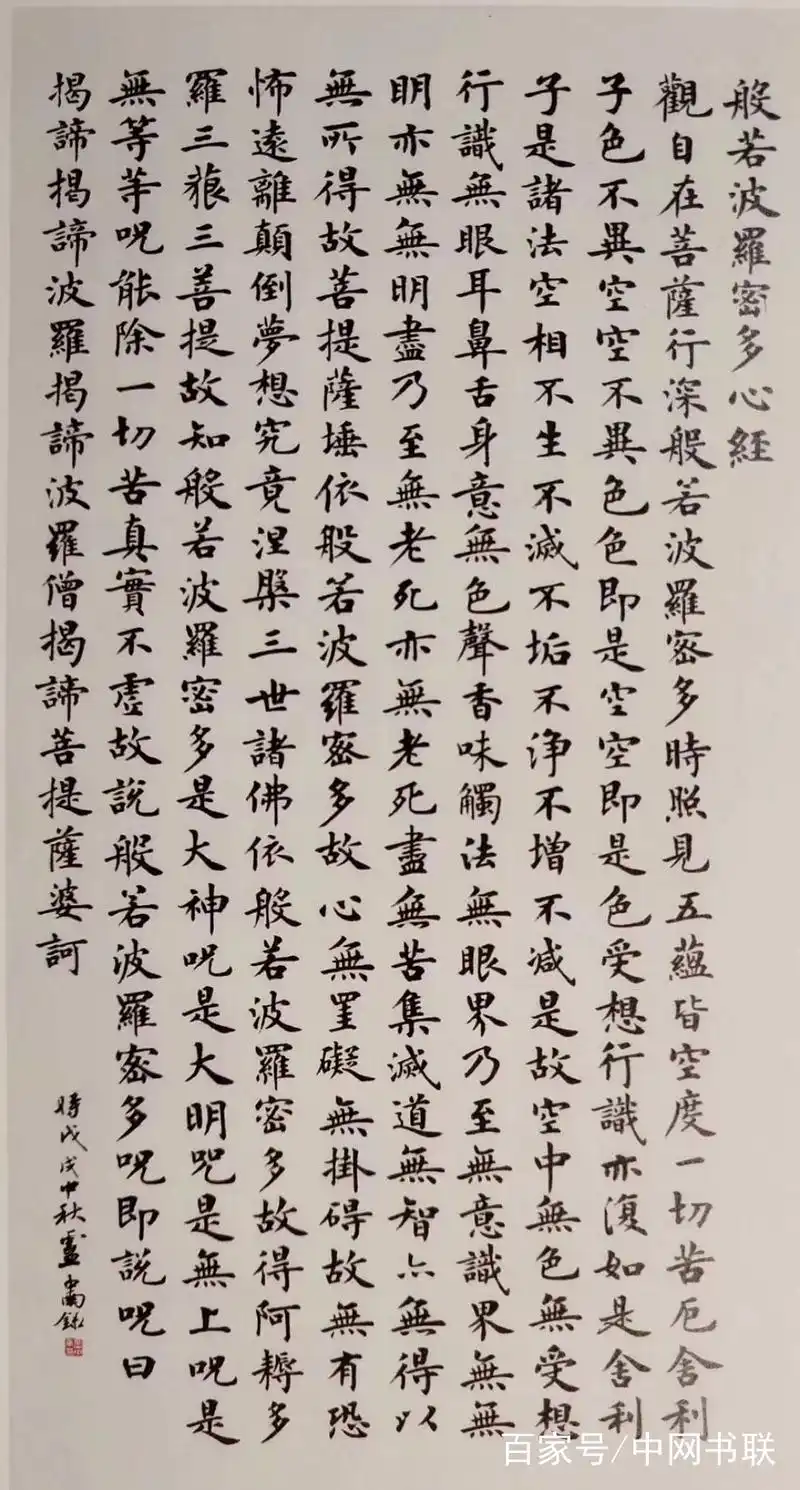 般若波羅密多心經
觀自在菩薩行深般若波羅密多時照見五蘊皆空度一切苦厄舍利
子色不異空空不異色色即是空空即是色受想行識亦復如是舍利
子是諸法空相不生不滅不垢不淨不增不減是故空中無色無受想
行識無眼耳鼻舌身意無色聲香味觸法無眼界乃至無意識界無無
明亦無無明盡乃至無老死亦無老死盡無苦集滅道無智亦無得以
無所得故菩提薩埵依般若波羅密多故心無罣礙無掛碍故無有恐
怖遠離顛倒夢想究竟涅槃三世諸佛依般若波羅密多故得阿耨多
羅三藐三菩提故知般若波羅密多是大神呪是大明呪是無上呪是
無等等呪能除一切苦真實不虛故說般若波羅密多呪即說呪曰
揭諦揭諦波羅揭諦波羅僧揭諦菩提薩婆訶
時戊戌中秋
百家号/中网书联